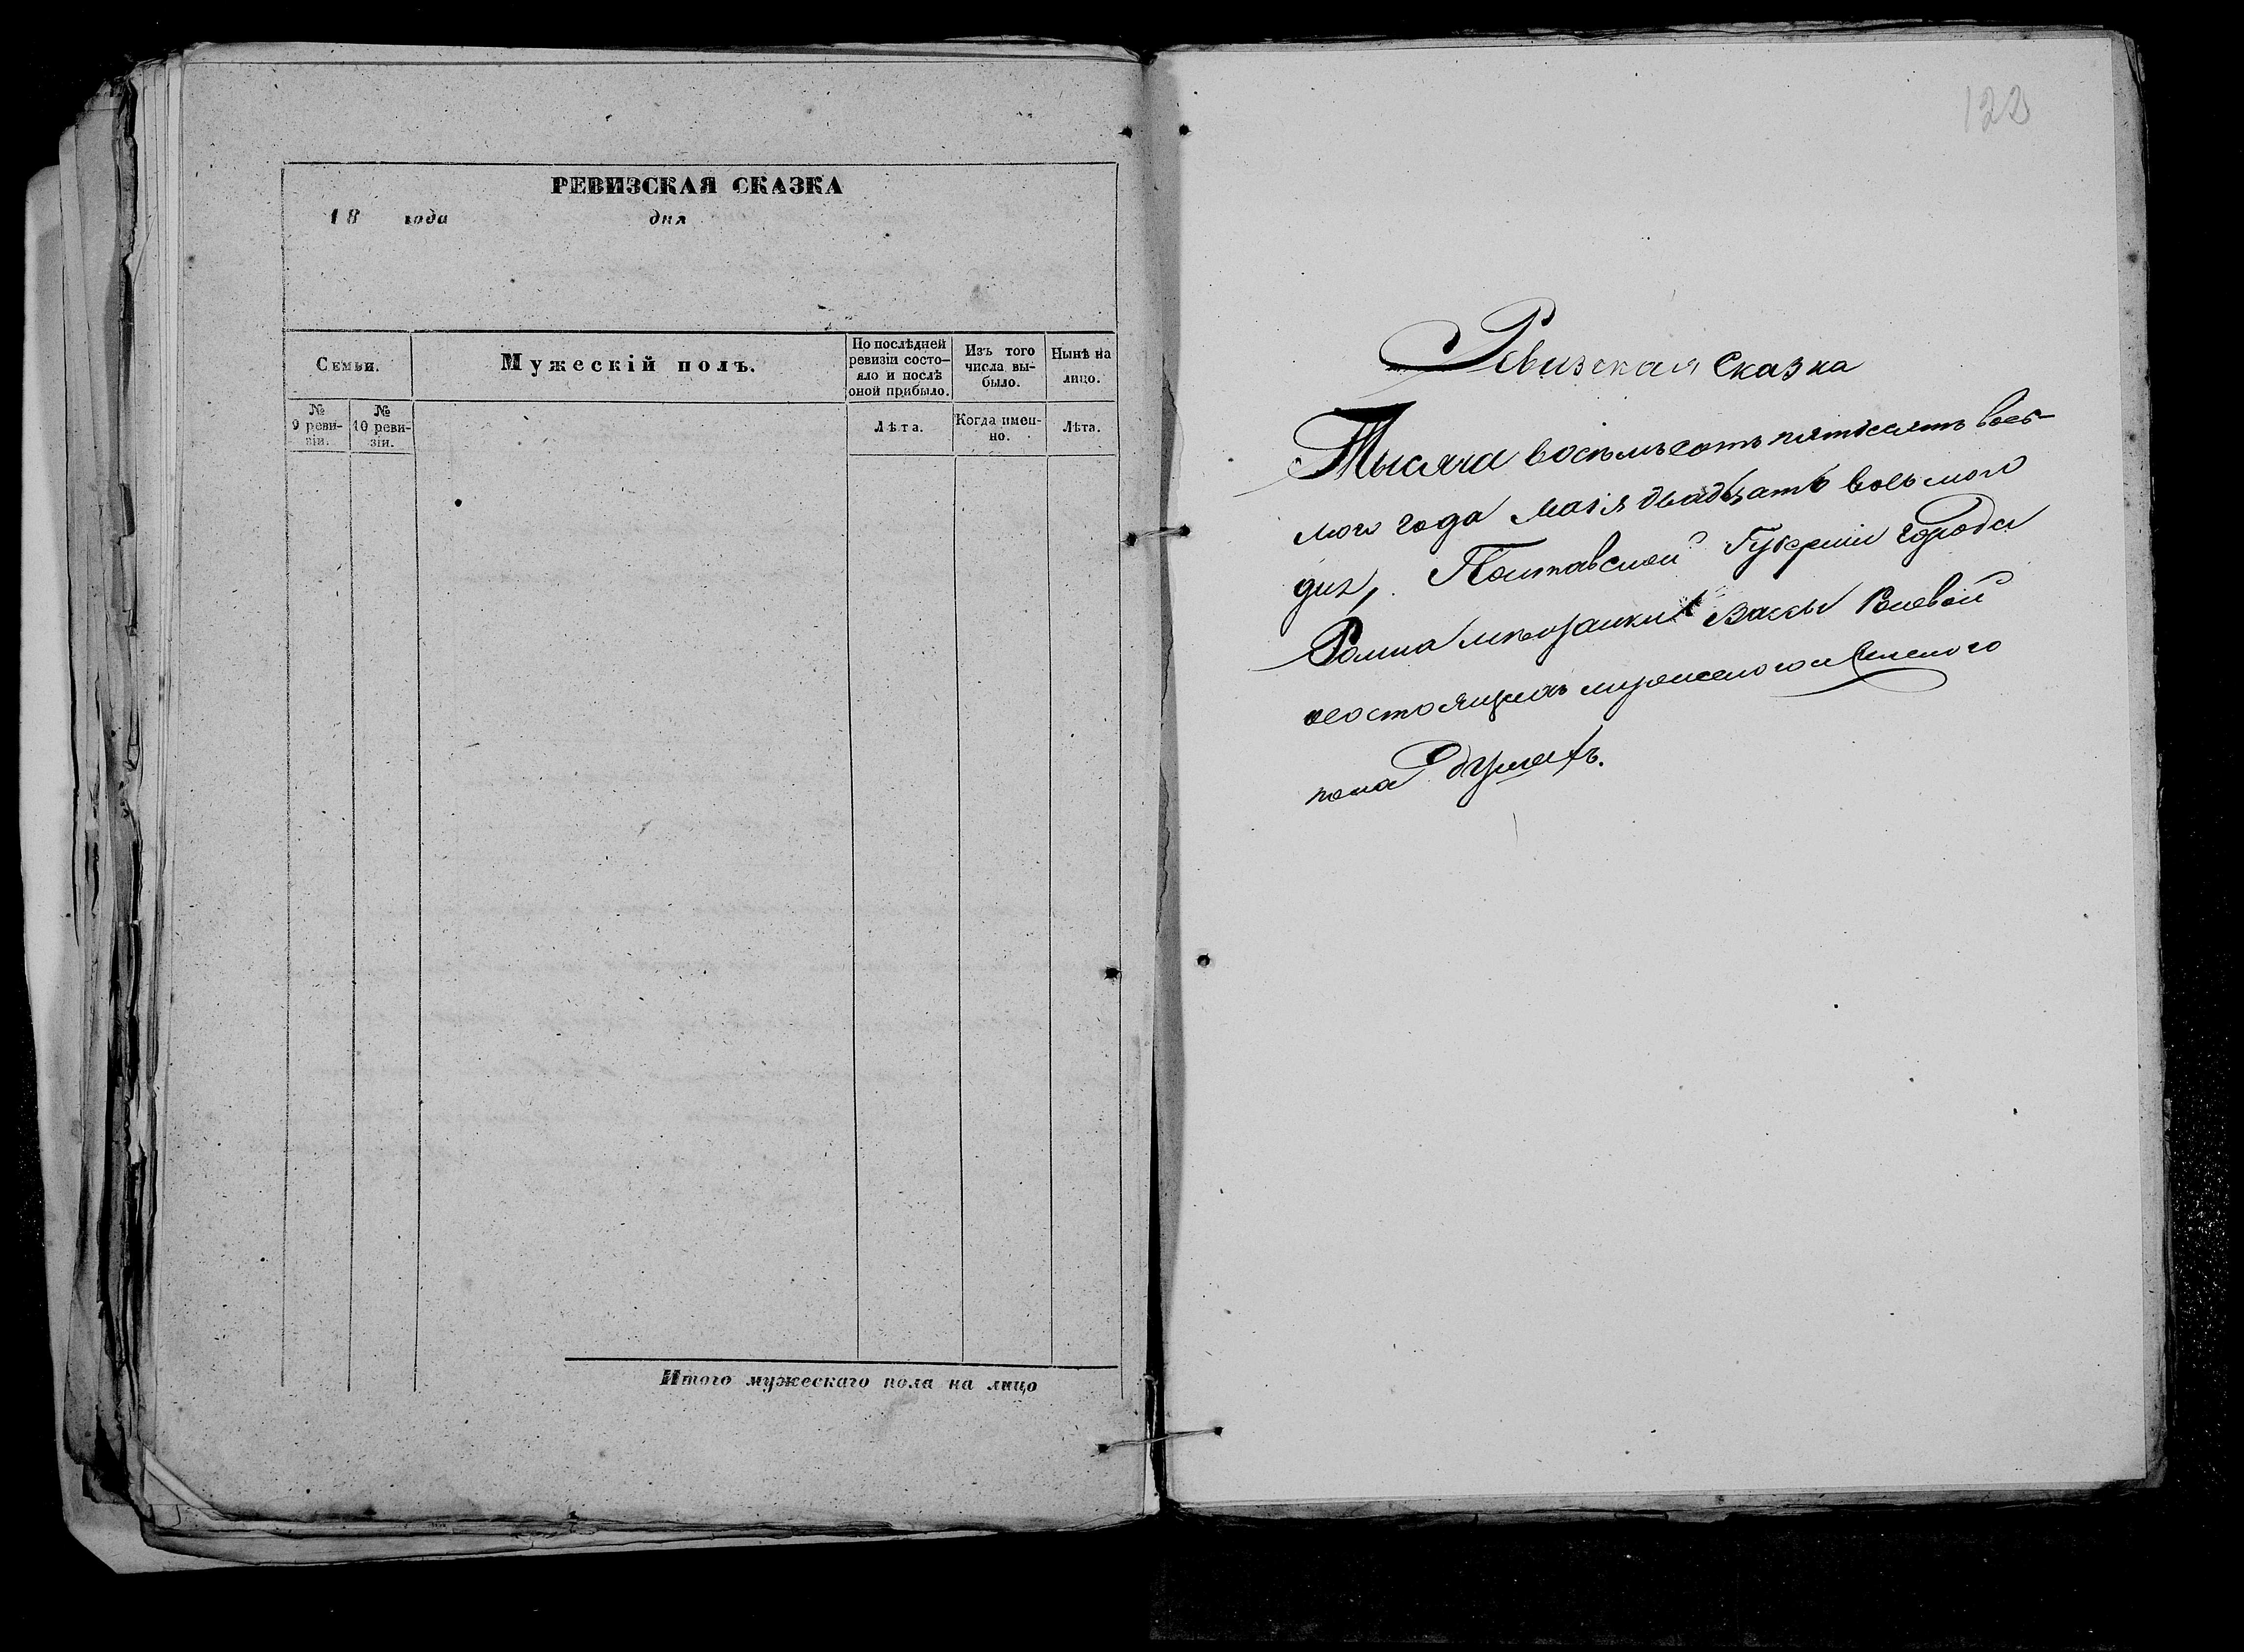 РЕВИЗСКАЯ СКАЗКА
18 года дня
Семьи.
Мужескій полъ.
По послѣдней
ревизіи состо-
яло и послѣ
оной прибыло.
Изъ того
числа вы-
было.
Нынѣ на
лицо.
№
9 реви-
зіи.
№
10 реви-
зіи.
Лѣта.
Когда имен-
но.
Лѣта.
Итого мужескаго пола на лицо
122
Ревизская Сказка
Тысяча восемьсотъ пятьдесятъ вось-
мого года мая двадцать восьмого
дня, Полтавской Губерніи города
Ромна мѣщанки
состоящихъ мужеского и женского
пола душахъ.